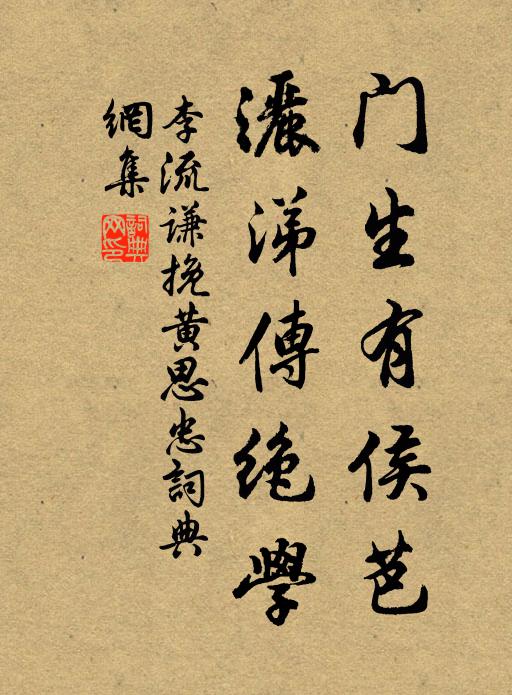 门生有侯芭
灑涕傳絶學
李流谦挽黄思忠詞典
網集
詞典
网印